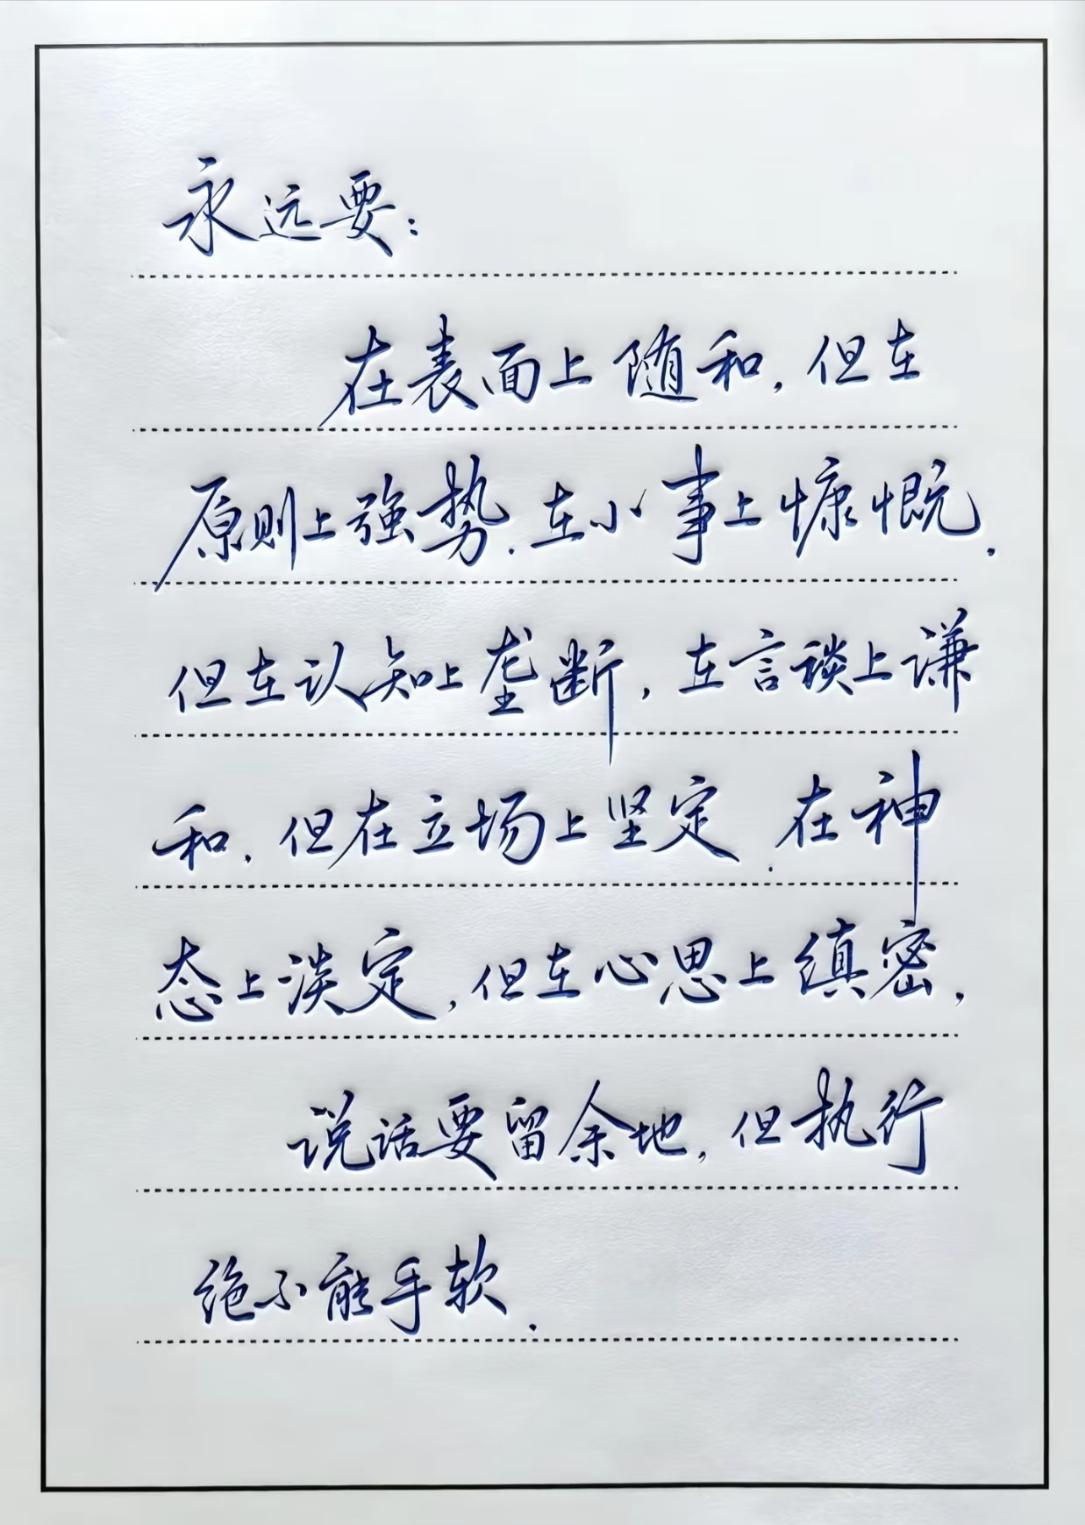 永远要：
在表面上随和，但在
原则上强势.在小事上慷慨.
但在认知上垄断，在言谈上谦
和.但在立场上坚定.在神
态上淡定，但在心思上缜密，
说话要留余地，但执行
绝不能手软.